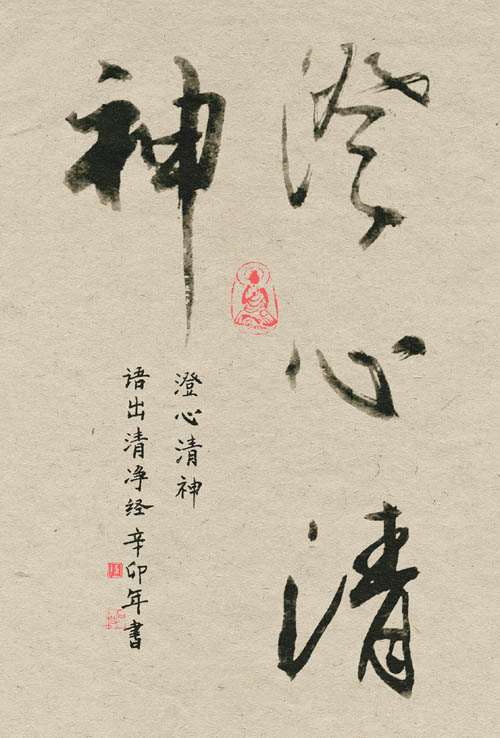 澄心清
神
澄心清神
语出清净经辛卯年书